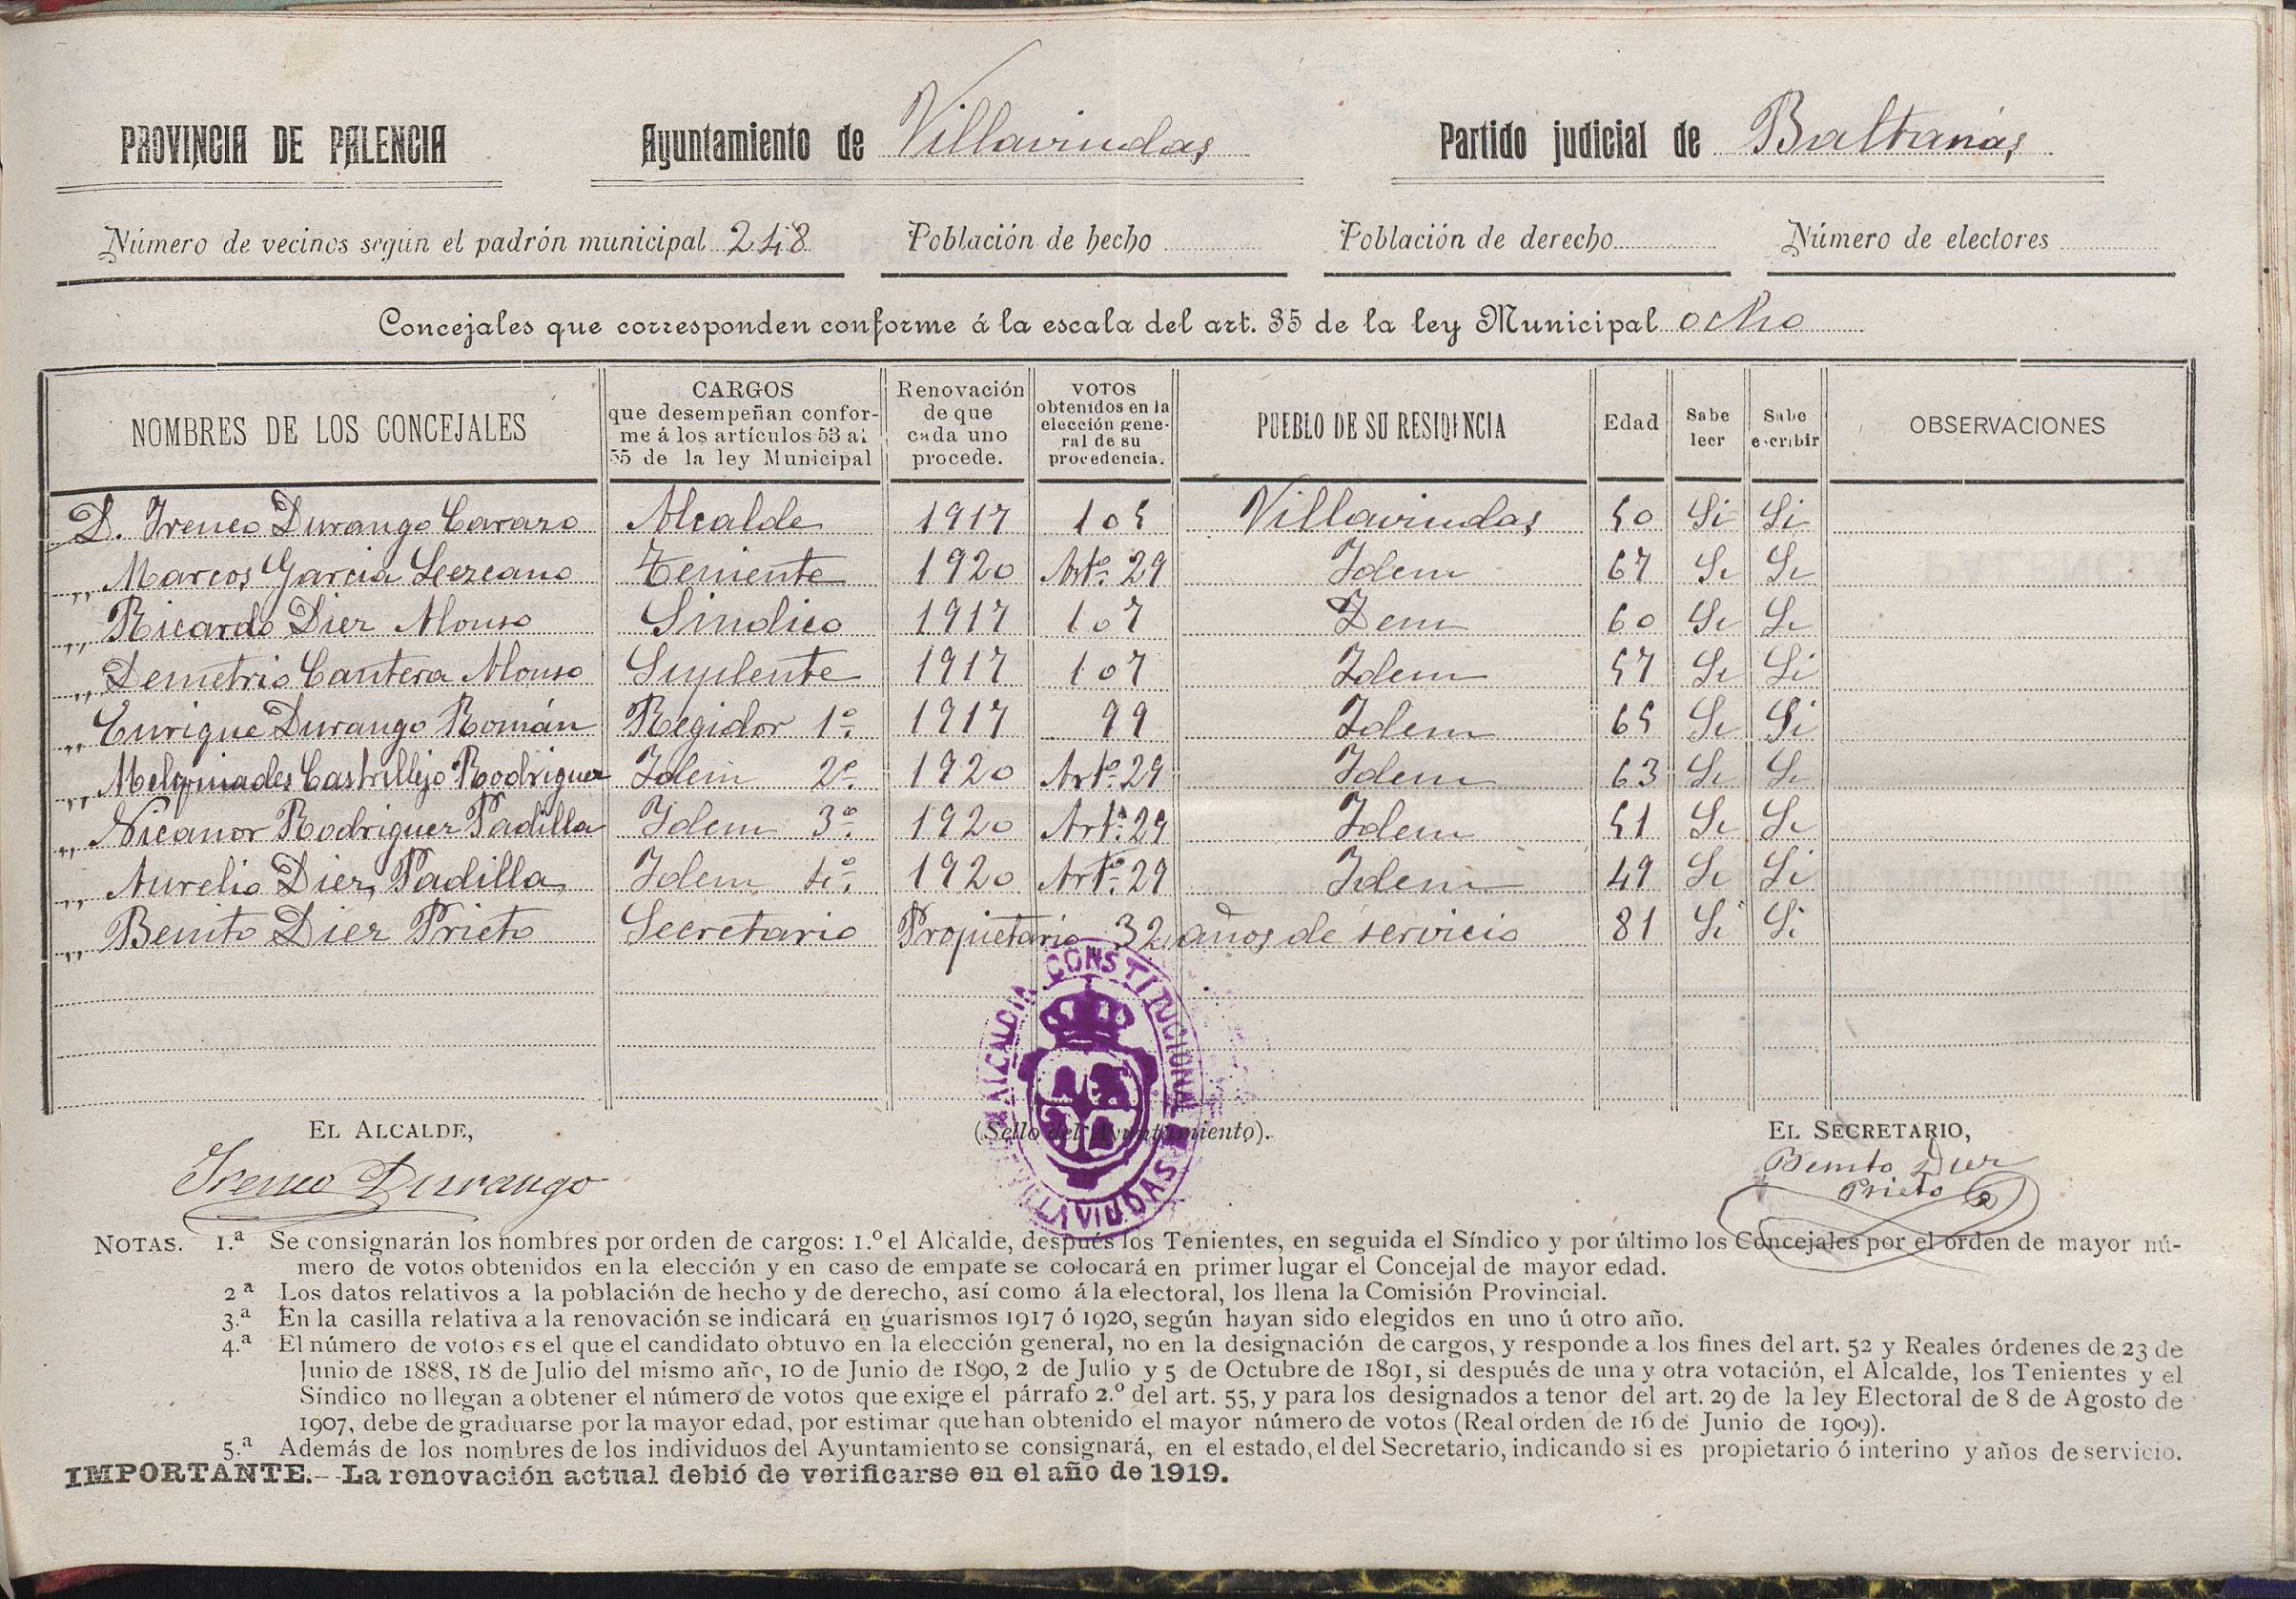 PROVINCIA DE PALENCIA Ayuntamiento de Villaviudas Partido judicial de Baltanás
Número de vecinos según el padrón municipal 248 Población de hecho Población de derecho Número de electores
Concejales que corresponden conforme á la escala del art. 35 de la ley Municipal ocho
NOMBRES DE LOS CONCEJALES CARGOS que desempeñan conforme á los artículos 53 al 55 de la ley Municipal Renovación de que cada uno procede. VOTOS obtenidos en la elección general de su procedencia. PUEBLO DE SU RESIDENCIA Edad Sabe leer Sabe escribir OBSERVACIONES
D. Ireneo Durango Carazo Alcalde 1917 105 Villaviudas 50 Si Si
,, Marcos Garcia Lezcano Teniente 1920 Artº 29 Idem 67 Si Si
,, Ricardo Diez Alonso Sindico 1917 107 Idem 60 Si Si
,, Demetrio Cantera Alonso Suplente 1917 107 Idem 57 Si Si
,, Enrique Durango Román Regidor 1º 1917 99 Idem 65 Si Si
,, Melquiades Castrillejo Rodriguez Idem 2º 1920 Artº 29 Idem 63 Si Si
,, Nicanor Rodriguez Padilla Idem 3º 1920 Artº 29 Idem 51 Si Si
,, Aurelio Diez Padilla Idem 4º 1920 Artº 29 Idem 49 Si Si
,, Benito Diez Prieto Secretario Propietario 32 años de servicio 81 Si Si
ALCALDIA CONSTITUCIONAL
VILLAVIUDAS
EL ALCALDE, (Sello del Ayuntamiento). EL SECRETARIO,
Ireneo Durango
Benito Diez
Prieto
NOTAS. 1.ª Se consignarán los nombres por orden de cargos: 1.º el Alcalde, después los Tenientes, en seguida el Síndico y por último los Concejales por el orden de mayor nú-
mero de votos obtenidos en la elección y en caso de empate se colocará en primer lugar el Concejal de mayor edad.
2ª Los datos relativos a la población de hecho y de derecho, así como á la electoral, los llena la Comisión Provincial.
3.ª En la casilla relativa a la renovación se indicará en guarismos 1917 ó 1920, según hayan sido elegidos en uno ú otro año.
4.ª El número de votos es el que el candidato obtuvo en la elección general, no en la designación de cargos, y responde a los fines del art. 52 y Reales órdenes de 23 de
Junio de 1888, 18 de Julio del mismo año, 10 de Junio de 1890, 2 de Julio y 5 de Octubre de 1891, si después de una y otra votación, el Alcalde, los Tenientes y el
Síndico no llegan a obtener el número de votos que exige el párrafo 2.º del art. 55, y para los designados a tenor del art. 29 de la ley Electoral de 8 de Agosto de
1907, debe de graduarse por la mayor edad, por estimar que han obtenido el mayor número de votos (Real orden de 16 de Junio de 1909).
5.ª Además de los nombres de los individuos del Ayuntamiento se consignará, en el estado, el del Secretario, indicando si es propietario ó interino y años de servicio.
IMPORTANTE.--La renovación actual debió de verificarse en el año de 1919.